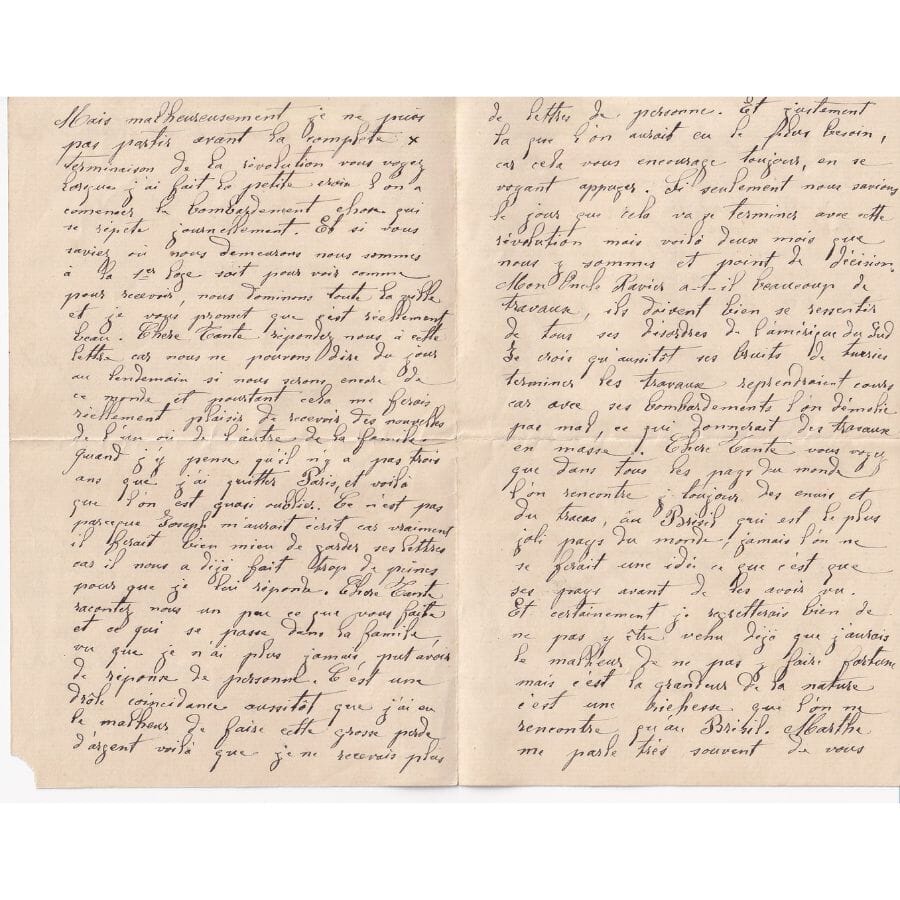 Mais malheureusement je ne puis
pas partir avant la complete x
terminaison de la révolution vous voyez
lorsque j'ai fait la petite croix l'on a
comencer le bombardement chose qui
se repete journellement. Et si vous
saviez où nous demeurons nous sommes
à la 1er loge soit pour voir comme
pour recevoir, nous dominons toute la ville
et je vous promet que c'est réellement
beau. Chere Tante répondez nous à cette
lettre car nous ne pouvons dire du jour
au lendemain si nous serons encore de
ce monde et pourtant cela me ferais
réellement plaisir de recevoir des nouvelles
de l'un ou de l'autre de la famille.
quand j'y pense qu'il n'y a pas trois
ans que j'ai quitter Paris, et voilà
que l'on est quasi oublier. Ce n'est pas
parceque Joseph m'aurait écrit car vraiment
il ferait bien mieu de garder ses lettres
car il nous a déjà fait trop de peines
pour que je lui réponde. Chere Tante
racontez nous un peu ce que vous faite
et ce qui se passe dans la famille,
vu que je n'ai plus jamais put avoir
de réponse de personne. C'est une
drôle coincidance aussitôt que j'ai eu
le malheur de faire cette grosse perde
d'argent voilà que je ne recevais plus
de lettres de personne. Et justement
la que l'on aurait eu le plus besoin,
car cela vous encourage toujours, en se
voyant appuyer. Si seulement nous savions
le jour que cela va se terminer avec cette
révolution mais voilà deux mois que
nous y sommes et point de décision.
Mon Oncle Xavier a-t-il beaucoup de
travaux, ils doivent bien se ressentir
de tous ses désordres de l'amérique du Sud
Je crois qu'aussitôt ses bruits de tueries
terminer les travaux reprendraient cours
car avec ses bombardements l'on démolie
pas mal, ce qui donnerait des travaux
en masse. Chere Tante vous voyez
que dans tous les pays du monde
l'on rencontre toujours des ennis et
du tracas, au Brésil qui est le plus
joli pays du monde, jamais l'on ne
se ferait une idée ce que c'est que
ses pays avant de les avoir vu.
Et certainement je regretterais bien de
ne pas y être venu déjà que j'aurais
le malheur de ne pas y faire fortune
mais c'est la grandeur de la nature
c'est une richesse que l'on ne
rencontre qu'au Brésil. Marthe
me parle très souvent de vous